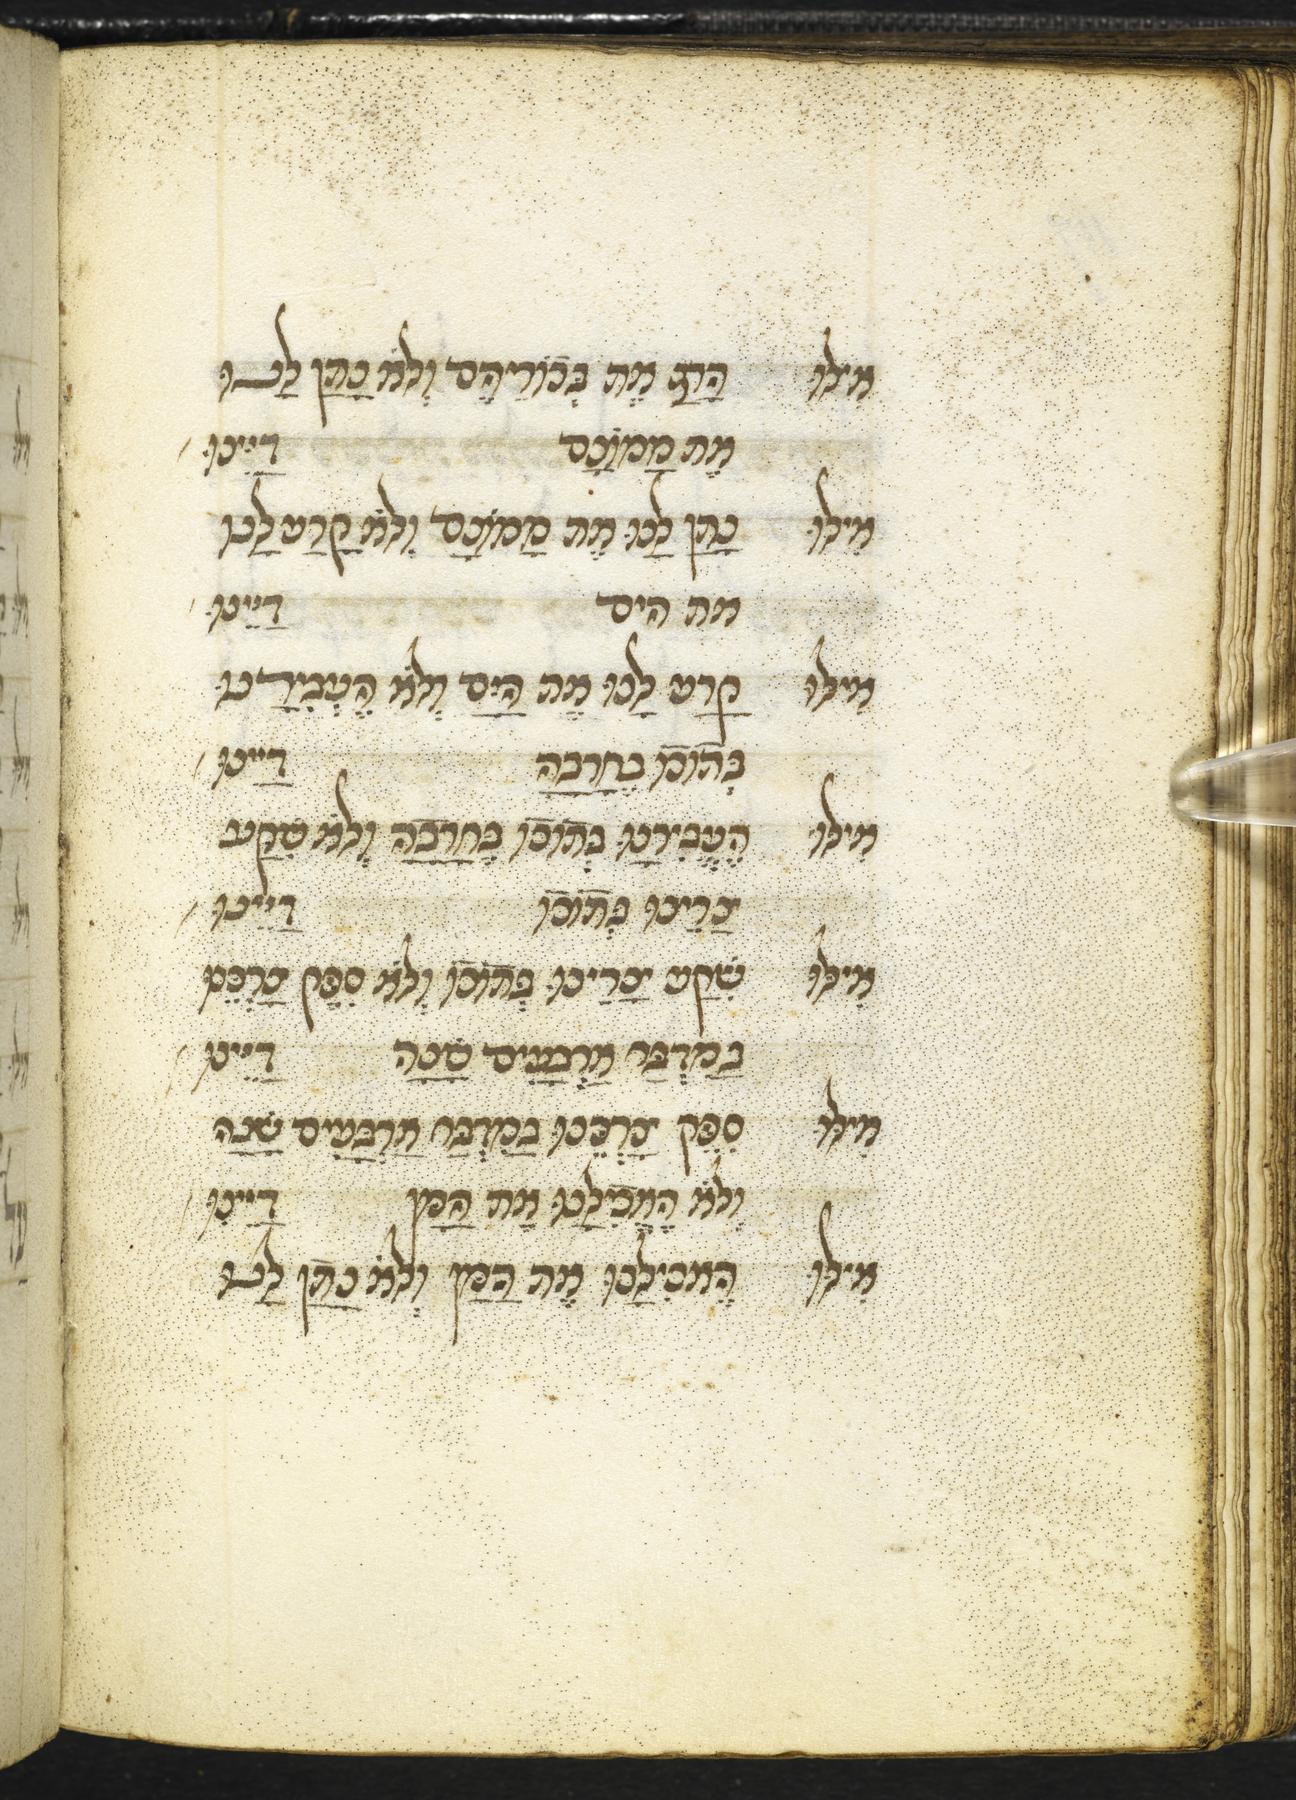 אִילּוּ הָרַג אֶת בְּכוֹרֵיהֶם וְלֹא נָתַן לָנוּ
אֶת מָמוֹנָם דַּיֵּינוּ
אִילּוּ נָתַן לָנוּ אֶת מָמוֹנָם וְלֹא קָרַע לָנוּ
את הים דַּיֵּינוּ
אִילּוּ קָרַע לָנוּ אֶת הַיָּם וְלֹא הֶעֱבִירָנוּ
בְּתוֹכוֹ בֶחָרָבָה דַּיֵּינוּ
אִילּוּ הֶעֱבִירָנוּ בְּתוֹכוֹ בֶּחָרָבָה וְלֹא שִׁקַּע
צָרֵינוּ בְּתוֹכוֹ דַּיֵּינוּ
אִילּוּ שִׁקַּע צָרֵינוּ בְּתוֹכוֹ וְלֹא סִפֵּק צָרְכֵּנוּ
בַּמִּדְבָּר אַרְבָּעִים שָׁנָה דַּיֵּינוּ
אִילּוּ סִפֵּק צָרְכֵּנוּ בַּמִּדְבָּר אַרְבָּעִים שָׁנָה
וְלֹא הֶאֱכִילָנוּ אֶת הַמָּן דַּיֵּינוּ
אִילּוּ הֶאכִילָנוּ אֶת הַמָּן וְלֹא נָתַן לָנוּ